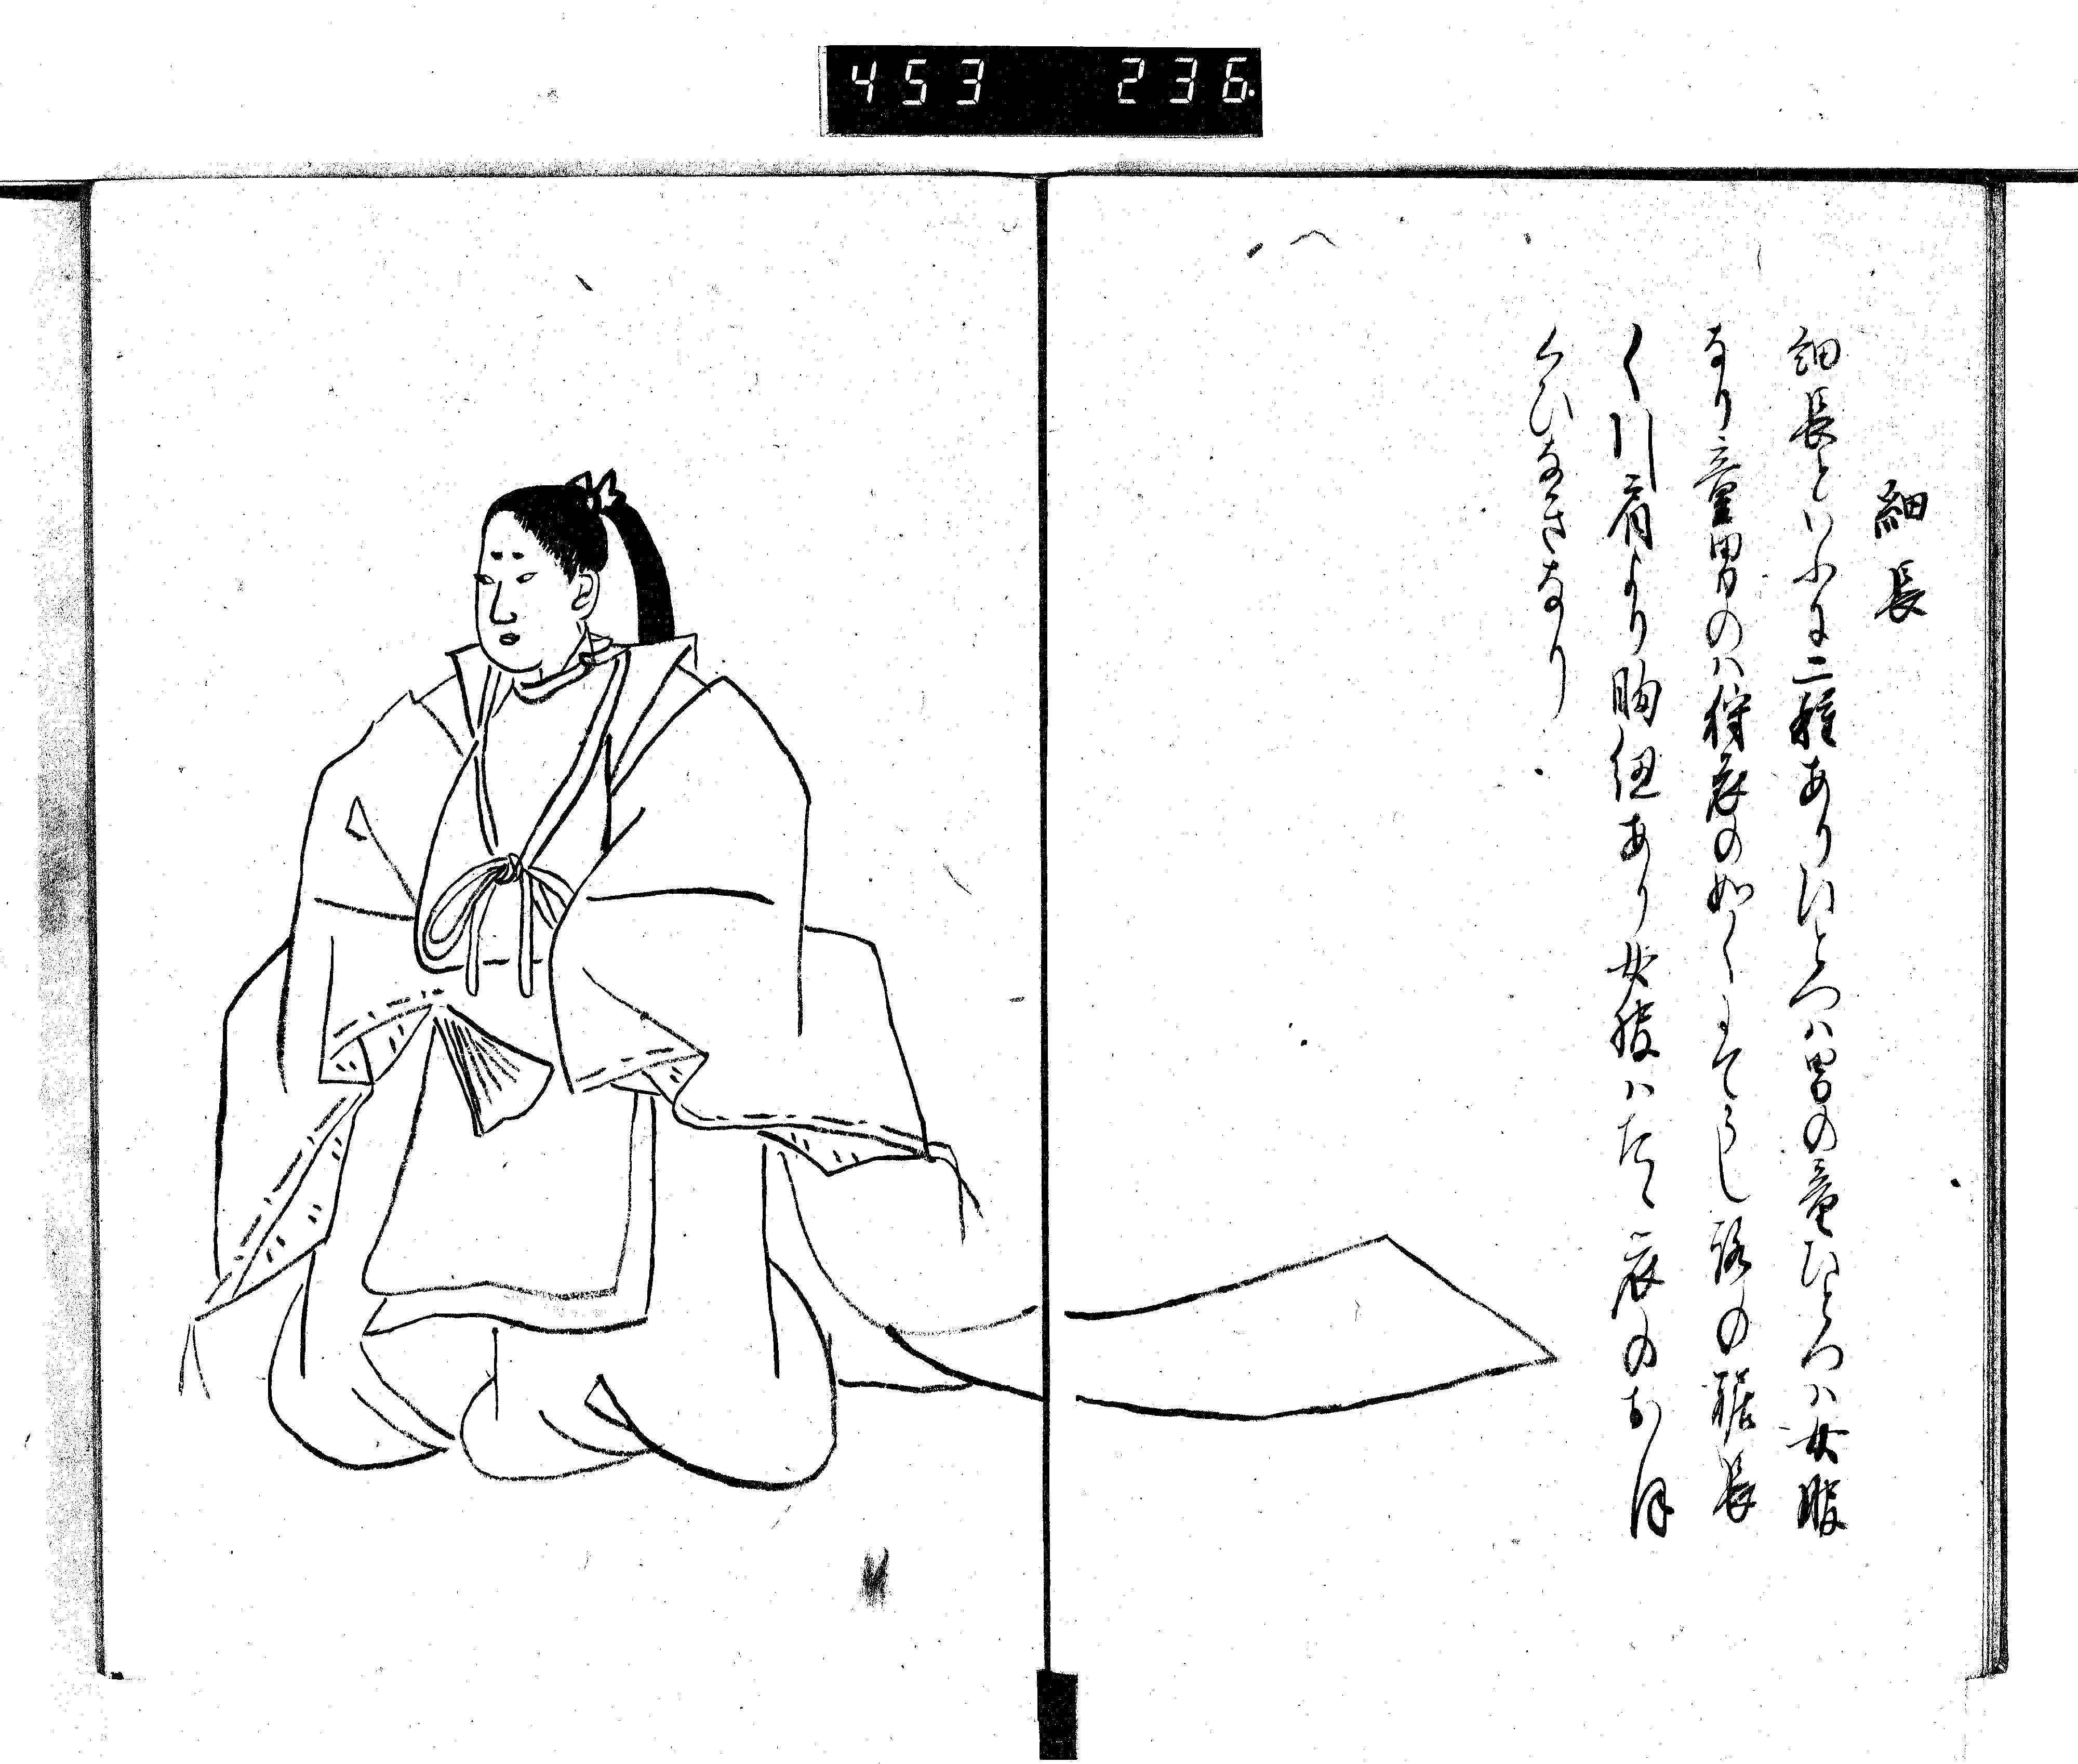 453 236.
細長
細長といふに二種ありひとつハ男の童ひとつハ女服
なり童男のハ狩衣の如くにてうしろの裾長
く川肩より胸紐あり女服ハたゝ衣のおほ
くひなきなり